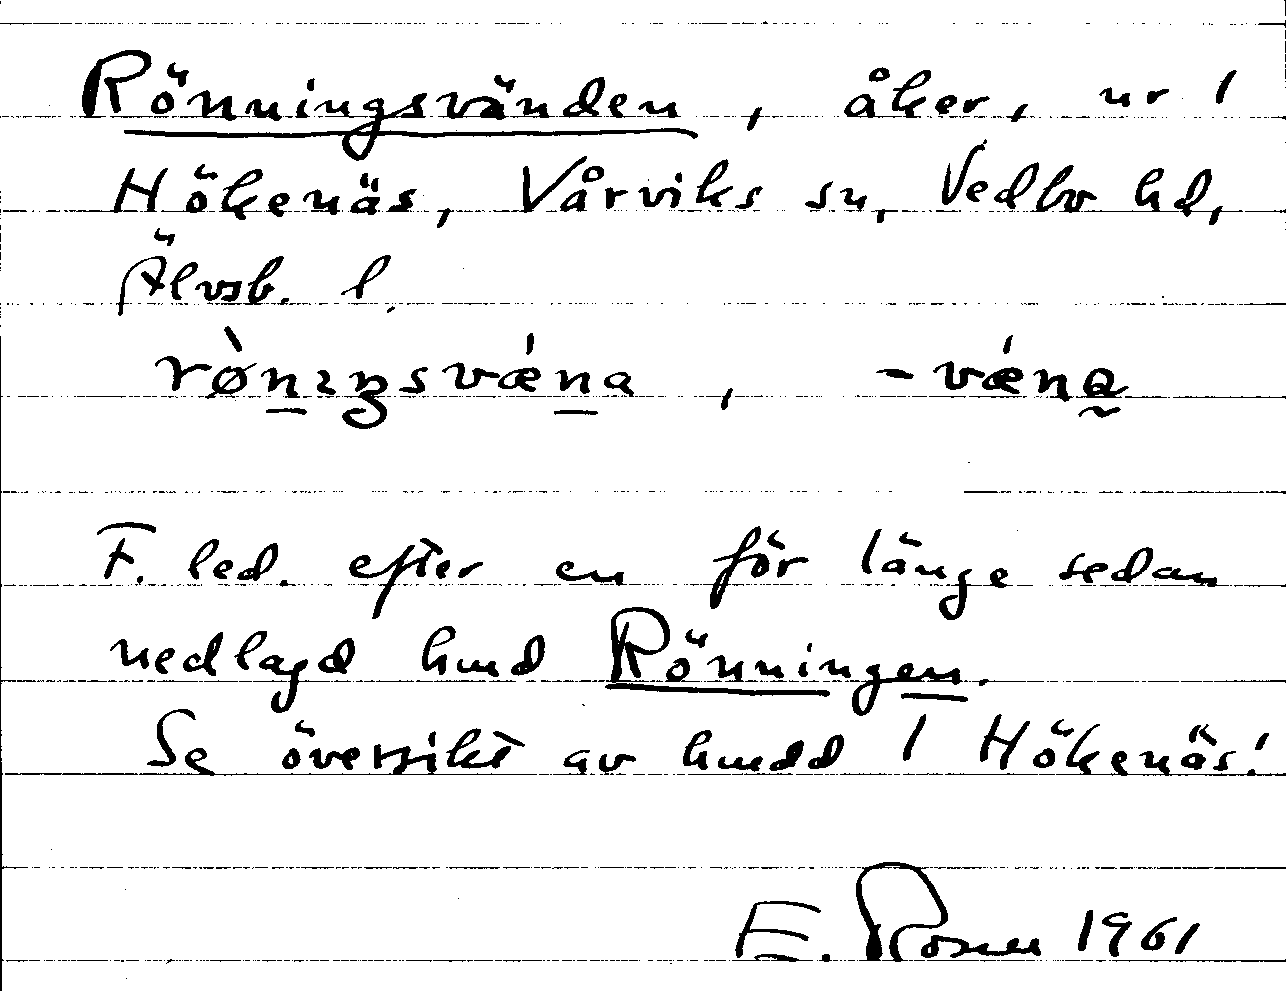 Rönningsvänden, åker, nr 1
Hökenäs, Vårviks sn, Vedbo hd,
Älvsb. l.
rø̀n̲ɪŋsvǽn̲a, -vǽna̰
F. led. efter en för länge sedan
nedlagd hmd Rönningen.
Se översikt av hmdd 1 Hökenäs!
E. Rosen 1961